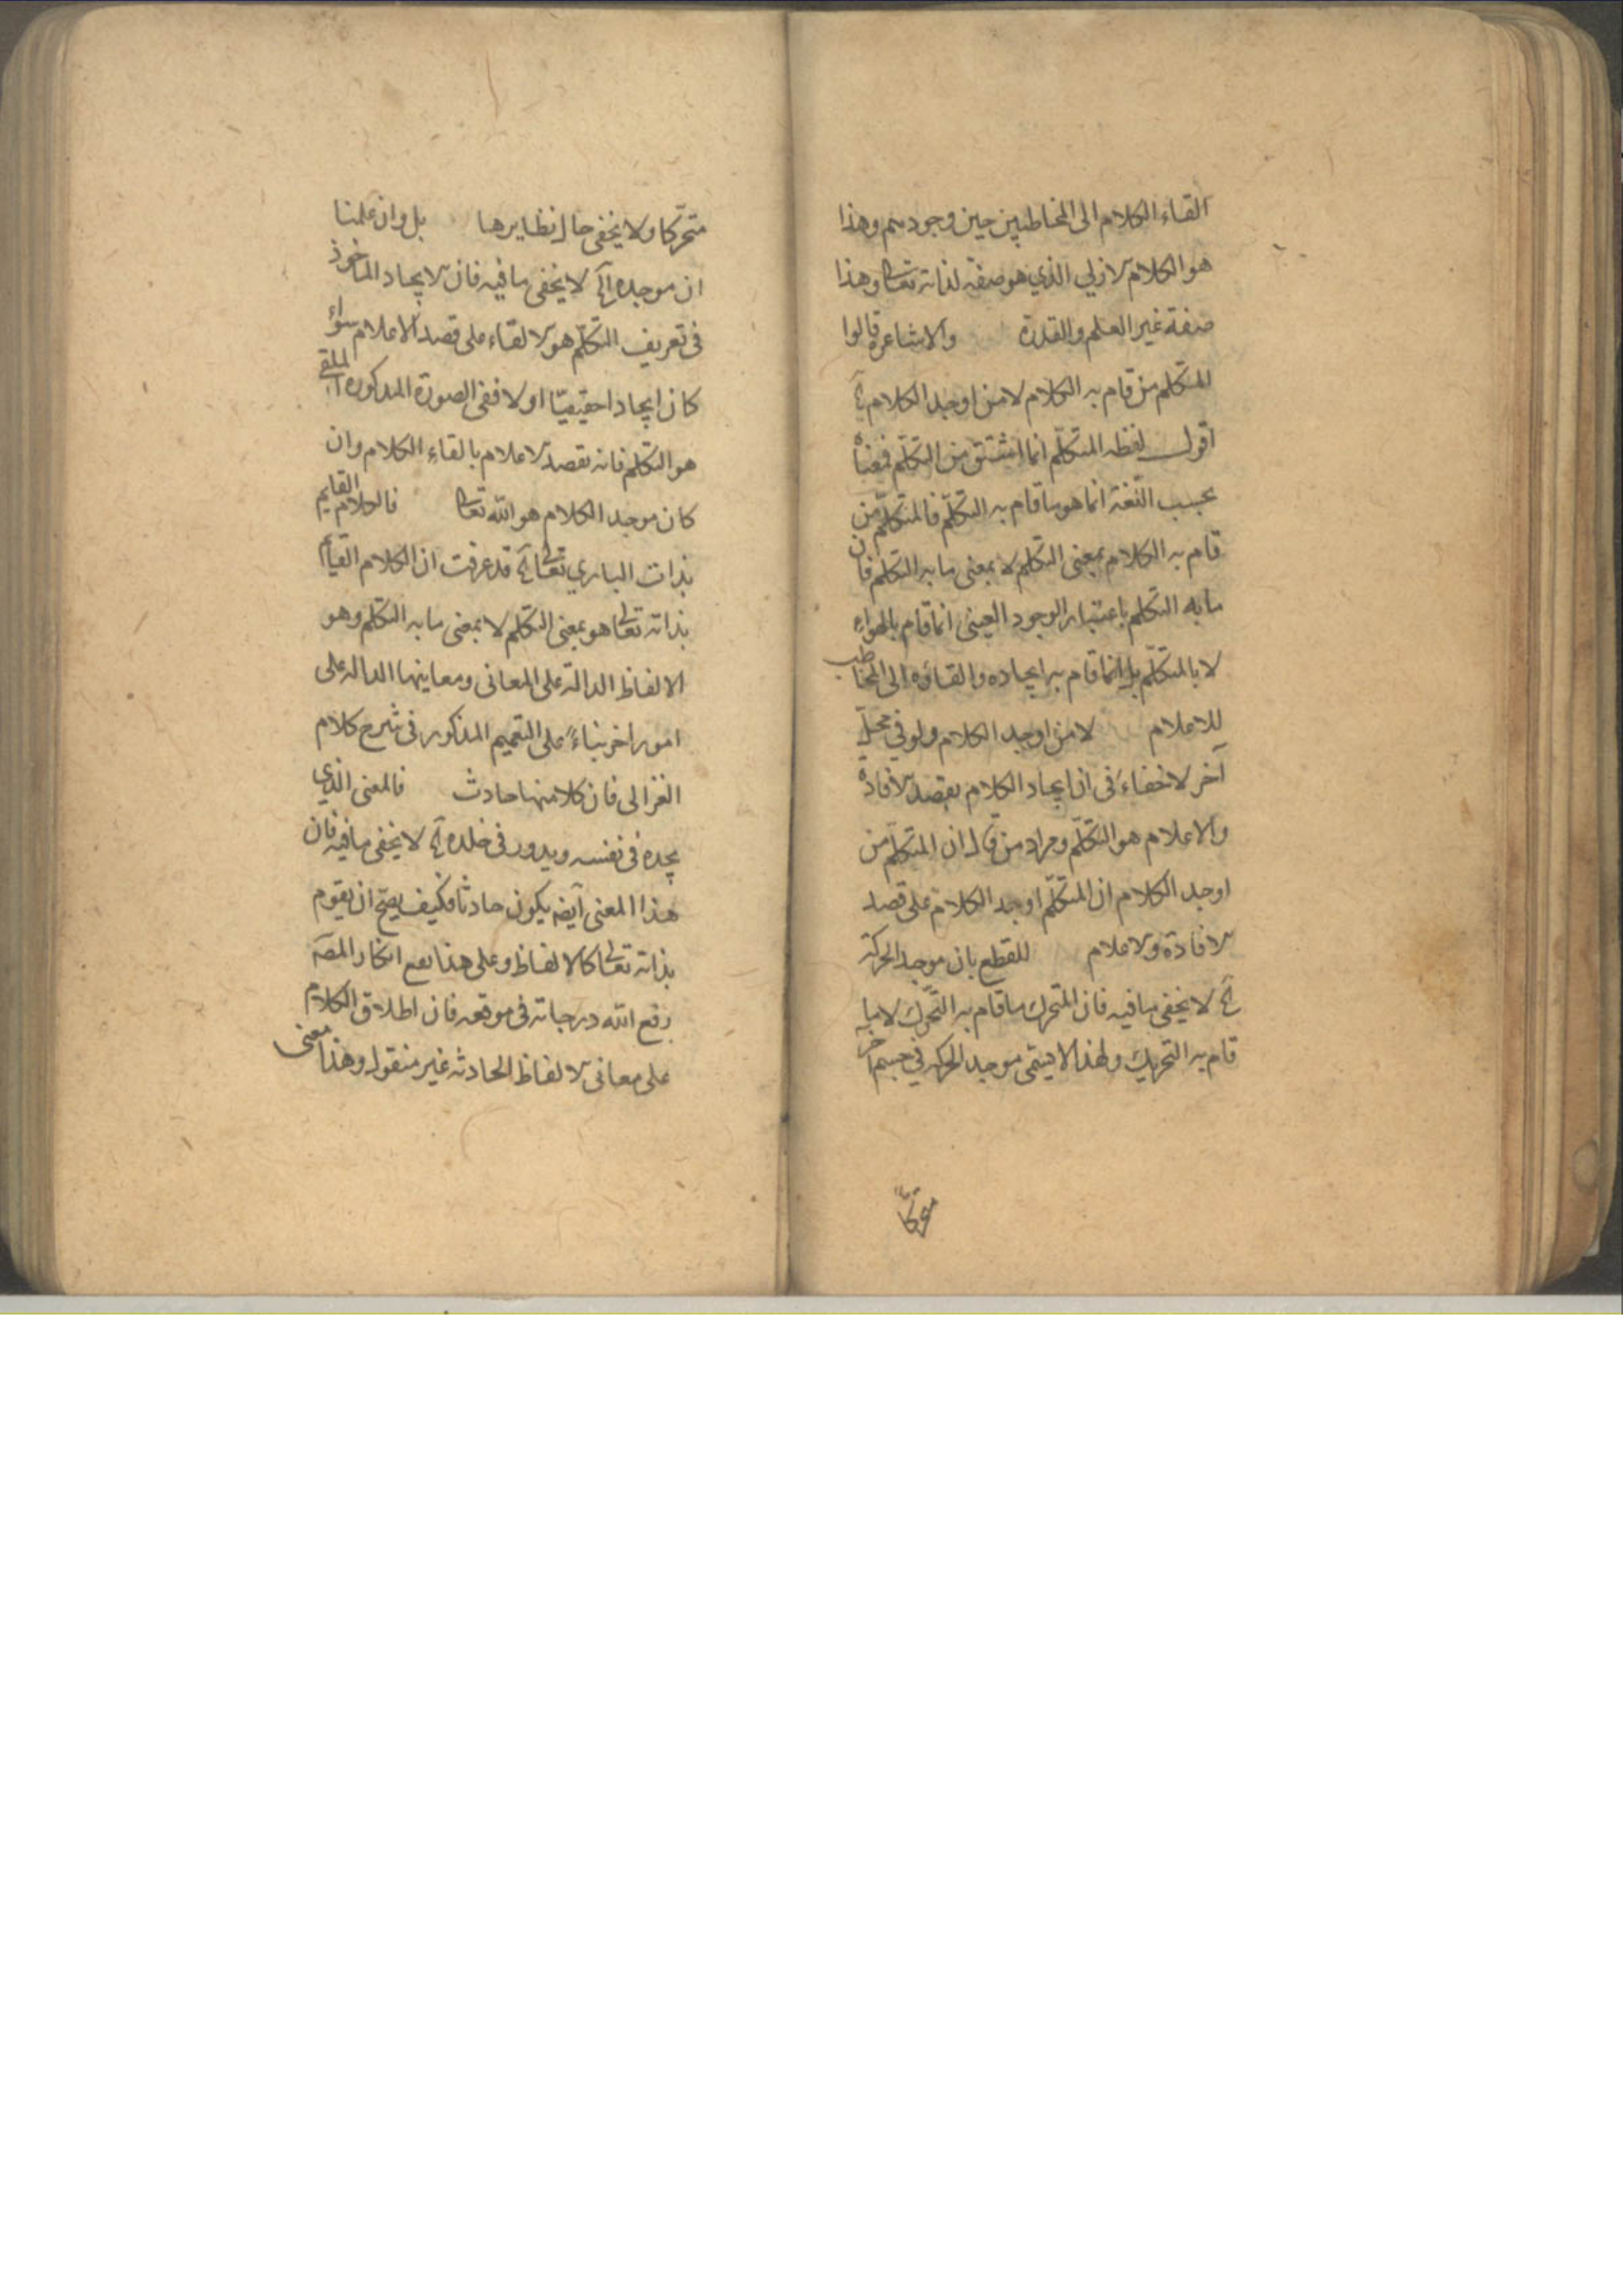 القاء الكلام الى المخاطبين حين وجودهم وهذا
هو الكلام الازلي الذي هو صفة لذاته تعالى وهذا
صفة غير العلم والقدرة والاشاعرة قالوا
المتكلم من قام به الكلام لا من اوجد الكلام آه
اقول لفظ المتكلّم انما اشتق من التكلّم فمعناه
بحسب اللغة انما هو ما قام به التكلّم فالمتكلّم من
قام به الكلام بمعنى التكلم لا بمعنى ما به التكلم فان
ما به التكلم باعتبار الوجود العيني انما قام بالهواء
لا بالمتكلّم بل انما قام به ايجاده والقاؤه الى المخاطب
للاعلام لا من اوجد الكلام ولو في محلّ
آخر لا خفاء في ان ايجاد الكلام بقصد الافادة
والاعلام هو التكلّم ومراد من قال ان المتكلّم من
اوجد الكلام ان المتكلّم اوجد الكلام على قصد
الافادة والاعلام للقطع بان موجد الحركة
آه لا يخفى ما فيه فان المتحرك ما قام به التحرّك لا ما
قام به التحريك ولهذا لا يسمى موجد الحركة في جسم آخر
متحرّكا
متحرّكا ولا يخفى حال نظايرها بل وان علمنا
ان موجده آه لا يخفى ما فيه فان الايجاد الماخوذ
في تعريف التكلّم هو الالقاء على قصد الاعلام سواء
كان ايجادا حقيقيّا اولا ففي الصورة المذكورة الملقي
هو المتكلم فانه بقصد الاعلام بالقاء الكلام وان
كان موجد الكلام هو الله تعالى فالكلام القايم
بذات الباري تعالى آه قد عرفت ان الكلام القيام
بذاته تعالى هو بمعنى التكلم لا بمعنى ما به التكلّم وهو
الالفاظ الدالة على المعاني ومعاينها الدالة على
امور اخر بناءً على التعميم المذكور في شرح كلام
الغزالى فان كلا منها حادث فالمعنى الذي
يجده في نفسه ويدور في خلده آه لا يخفى ما فيه فان
هذا المعنى ايضه يكون حادثا فكيف يصحّ ان يقوم
بذاته تعالى كالالفاظ وعلى هذا يقع انكار المصه
رفع الله درجاته في موقعه فان اطلاق الكلام
على معاني الالفاظ الحادثة غير منقول وهذا معنى